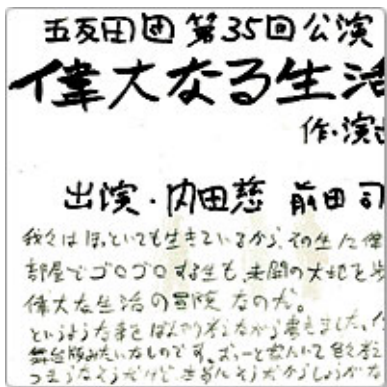 五反田団 第35回公演
偉大なる生活
作・演出
出演・内田慈 前田司
我々はほっといても生きているから、その生 偉
部屋でゴロゴロする生も、未開の大地を歩
偉大な生活の冒険 なのだ。
というような事をぼんやり考えながら書きました。
舞台版みたいなものです。ずーっと
つまらなそうだけど